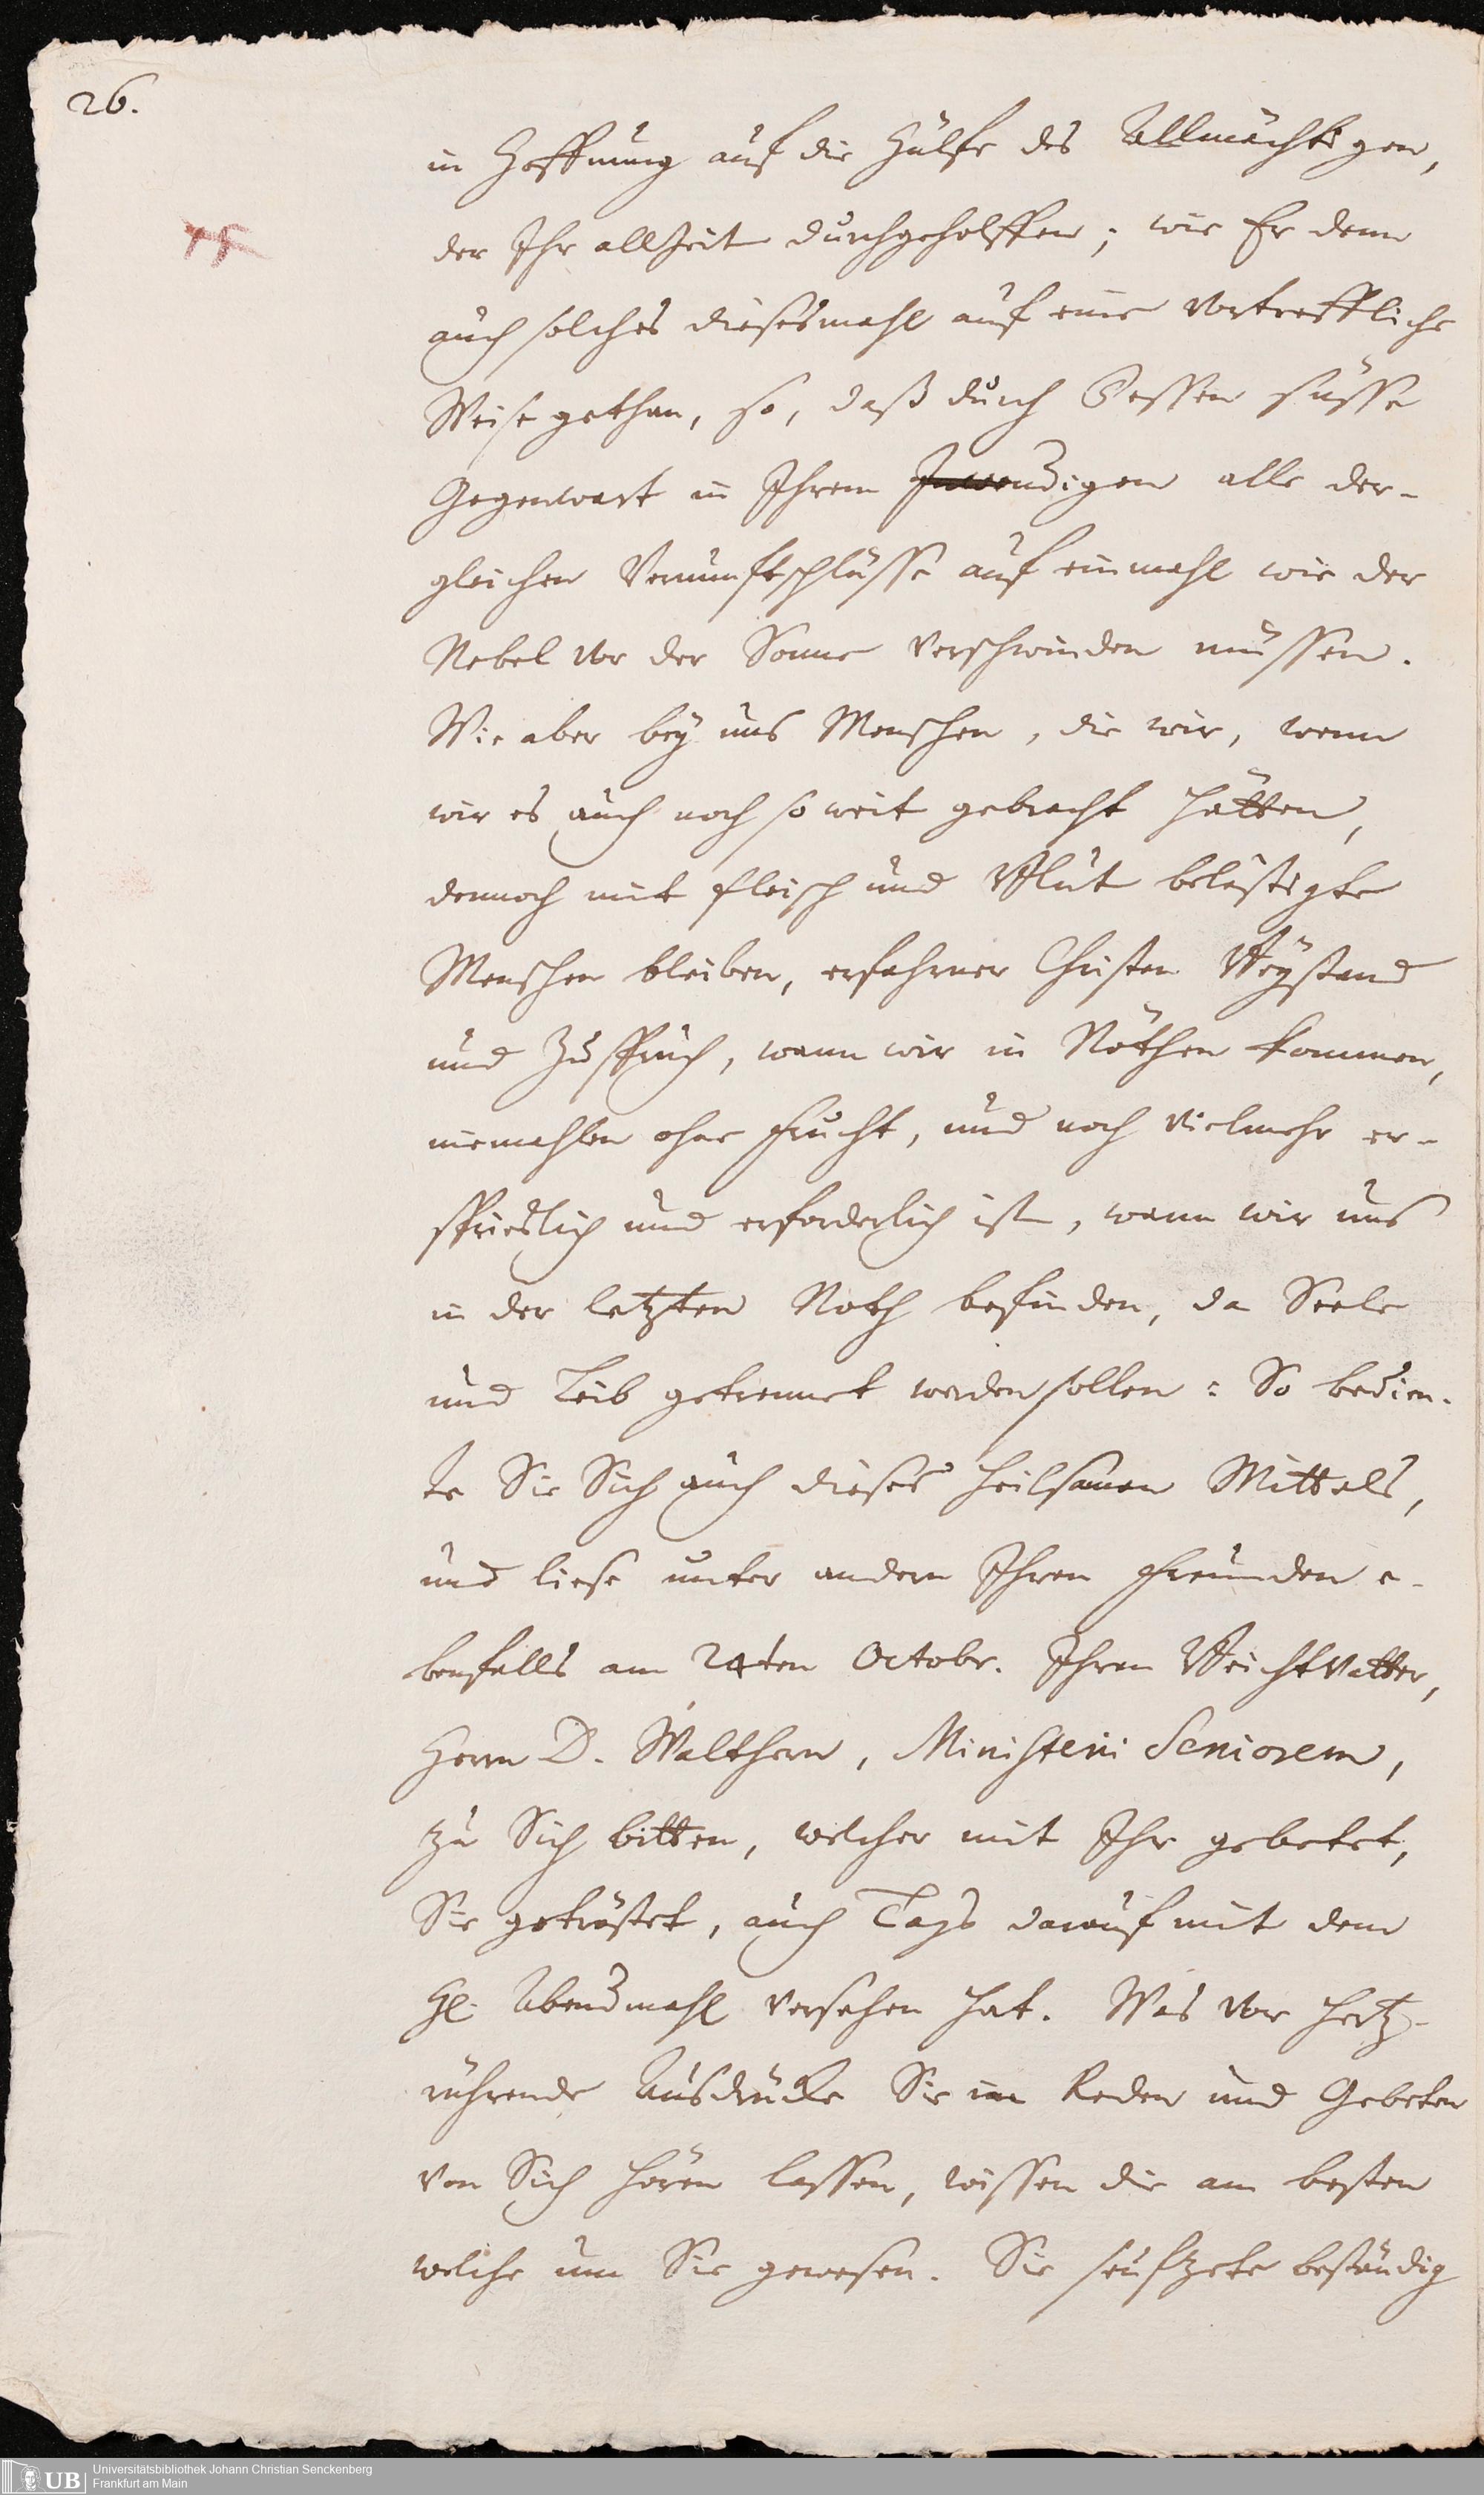 26.
in Hoffnung auf die Hülfe des Allmächtigen,
der Ihr allzeit durchgeholffen; wie Er denn
auch solches diesesmahl auf eine vortreffliche
Weise gethan, so, daß durch Dessen süsse
Gegenwart in Ihrem Inwendigen alle der-
gleichen Vernunftschlüsse auf einmahl wie der
Nebel vor der Sonne verschwinden müssen.
Wie aber bey uns Menschen, die wir, wenn
wir es auch noch so weit gebracht hätten,
dennoch mit Fleisch und Blut belästigte
Menschen bleiben, erfahrner Christen Beystand
und Zuspruch, wann wir in Nöthen kommen,
niemahlen ohne Frucht, und noch vielmehr er-
sprieslich und erforderlich ist, wann wir uns
in der letzten Noth befinden, da Seele
und Leib getrennet werden sollen: So bedien-
te Sie Sich auch dieses heilsamen Mittels,
und liese unter andern Ihren Freunden e-
benfalls am 24ten Octobr. Ihren Beichtvatter,
Herrn D. Walthern, Ministerii Seniorem,
zu Sich bitten, welcher mit Ihr gebetet,
Sie getröstet, auch Tags darauf mit dem
Hl. Abendmahl versehen hat. Was vor hertz-
rührende Ausdrücke Sie im Reden und Gebeten
von Sich hören lassen, wissen die am besten
welche um Sie gewesen. Sie seufzete beständig
UB
Universitätsbibliothek Johann Christian Senckenberg
Frankfurt am Main